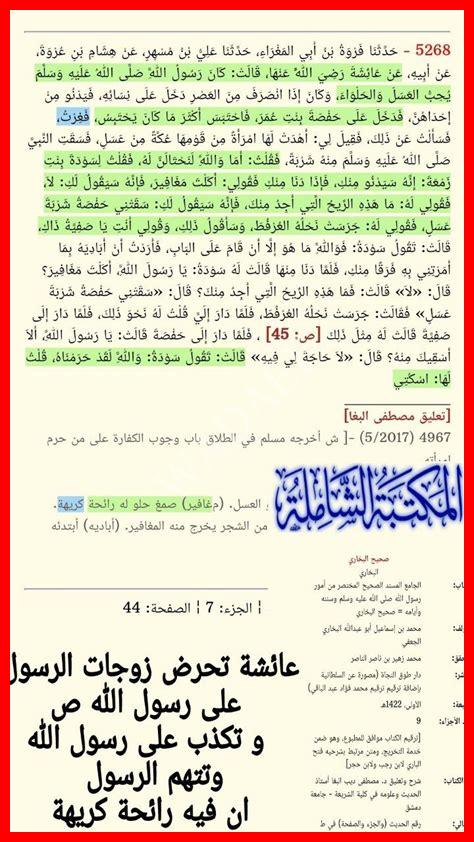 5268 - حَدَّثَنَا فَرْوَةُ بْنُ أَبِي المَغْرَاءِ، حَدَّثَنَا عَلِيُّ بْنُ مُسْهِرٍ، عَنْ هِشَامِ بْنِ عُرْوَةَ،
عَنْ أَبِيهِ، عَنْ عَائِشَةَ رَضِيَ اللَّهُ عَنْهَا، قَالَتْ: كَانَ رَسُولُ اللَّهِ صَلَّى اللهُ عَلَيْهِ وَسَلَّمَ
يُحِبُّ العَسَلَ وَالحَلْوَاءَ، وَكَانَ إِذَا انْصَرَفَ مِنَ العَصْرِ دَخَلَ عَلَى نِسَائِهِ، فَيَدْنُو مِنْ
إِحْدَاهُنَّ، فَدَخَلَ عَلَى حَفْصَةَ بِنْتِ عُمَرَ، فَاحْتَبَسَ أَكْثَرَ مَا كَانَ يَحْتَبِسُ، فَغِرْتُ،
فَسَأَلْتُ عَنْ ذَلِكَ، فَقِيلَ لِي: أَهْدَتْ لَهَا امْرَأَةٌ مِنْ قَوْمِهَا عُكَّةً مِنْ عَسَلٍ، فَسَقَتِ النَّبِيَّ
صَلَّى اللهُ عَلَيْهِ وَسَلَّمَ مِنْهُ شَرْبَةً، فَقُلْتُ: أَمَا وَاللَّهِ لَنَحْتَالَنَّ لَهُ، فَقُلْتُ لِسَوْدَةَ بِنْتِ
زَمْعَةَ: إِنَّهُ سَيَدْنُو مِنْكِ، فَإِذَا دَنَا مِنْكِ فَقُولِي: أَكَلْتَ مَغَافِيرَ، فَإِنَّهُ سَيَقُولُ لَكِ: لاَ،
فَقُولِي لَهُ: مَا هَذِهِ الرِّيحُ الَّتِي أَجِدُ مِنْكَ، فَإِنَّهُ سَيَقُولُ لَكِ: سَقَتْنِي حَفْصَةُ شَرْبَةَ
عَسَلٍ، فَقُولِي لَهُ: جَرَسَتْ نَحْلُهُ العُرْفُطَ، وَسَأَقُولُ ذَلِكِ، وَقُولِي أَنْتِ يَا صَفِيَّةُ ذَاكِ،
قَالَتْ: تَقُولُ سَوْدَةُ: فَوَاللَّهِ مَا هُوَ إِلَّا أَنْ قَامَ عَلَى البَابِ، فَأَرَدْتُ أَنْ أُبَادِيَهُ بِمَا
أَمَرْتِنِي بِهِ فَرَقًا مِنْكِ، فَلَمَّا دَنَا مِنْهَا قَالَتْ لَهُ سَوْدَةُ: يَا رَسُولَ اللَّهِ، أَكَلْتَ مَغَافِيرَ؟
قَالَ: «لاَ» قَالَتْ: فَمَا هَذِهِ الرِّيحُ الَّتِي أَجِدُ مِنْكَ؟ قَالَ: «سَقَتْنِي حَفْصَةُ شَرْبَةَ
عَسَلٍ» فَقَالَتْ: جَرَسَتْ نَحْلُهُ العُرْفُطَ، فَلَمَّا دَارَ إِلَيَّ قُلْتُ لَهُ نَحْوَ ذَلِكَ، فَلَمَّا دَارَ إِلَى
صَفِيَّةَ قَالَتْ لَهُ مِثْلَ ذَلِكَ [ص: 45] ، فَلَمَّا دَارَ إِلَى حَفْصَةَ قَالَتْ: يَا رَسُولَ اللَّهِ، أَلاَ
أَسْقِيكَ مِنْهُ؟ قَالَ: «لاَ حَاجَةَ لِي فِيهِ» قَالَتْ: تَقُولُ سَوْدَةُ: وَاللَّهِ لَقَدْ حَرَمْنَاهُ، قُلْتُ
لَهَا: اسْكُتِي
[تعليق مصطفى البغا]
4967 (5/2017) -[ ش أخرجه مسلم في الطلاق باب وجوب الكفارة على من حرم
امرأته
العسل. (مغافير) صمغ حلو له رائحة كريهة.
من الشجر يخرج منه المغافير. (أباديه) أبتدئه
المكتبة الشاملة
صحيح البخاري
البخاري
اب: الجامع المسند الصحيح المختصر من أمور
رسول الله صلى الله عليه وسلم وسننه
وأيامه = صحيح البخاري
لف: محمد بن إسماعيل أبو عبدالله البخاري
الجعفي
قق: محمد زهير بن ناصر الناصر
شر: دار طوق النجاة (مصورة عن السلطانية
بإضافة ترقيم ترقيم محمد فؤاد عبد الباقي)
عة: الأولى، 1422هـ
أجزاء: 9
[ترقيم الكتاب موافق للمطبوع، وهو ضمن
خدمة التخريج، ومتن مرتبط بشرحيه فتح
الباري لابن رجب ولابن حجر]
الكتاب: شرح وتعليق د. مصطفى ديب البغا أستاذ
الحديث وعلومه في كلية الشريعة - جامعة
دمشق
الي: رقم الحديث (والجزء والصفحة) في ط
¦ الجزء: 7 ¦ الصفحة: 44
عائشة تحرض زوجات الرسول
على رسول الله ص
و تكذب على رسول الله
وتتهم الرسول
ان فيه رائحة كريهة